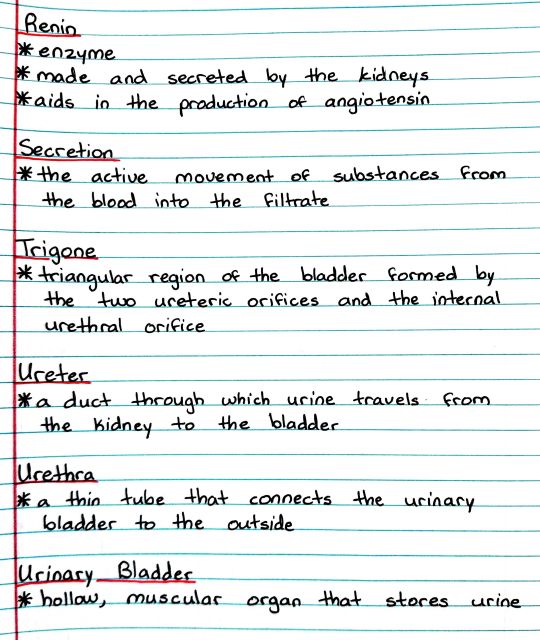 Renin
* enzyme
* made and secreted by the kidneys
* aids in the production of angiotensin
Secretion
* the active movement of substances from
the blood into the filtrate
Trigone
* triangular region of the bladder formed by
the two ureteric orifices and the internal
urethral orifice
Ureter
* a duct through which urine travels from
the kidney to the bladder
Urethra
* a thin tube that connects the urinary
bladder to the outside
Urinary Bladder
* hollow, muscular organ that stores urine